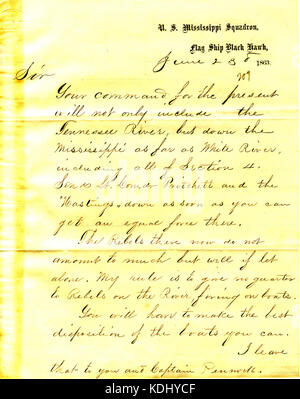 U. S. Mississippi Squadron,
Flag Ship Black Hawk,
June 23d 1863.
Sir
Your command for the present
will not only include the
Tennessee River, but down the
Mississippi as far as White River,
including all of Section 4.
Send Lt. Comdr Pritchett and the
"Hastings" down as soon as you can
get an equal force there.
The Rebels there now do not
amount to much but will if let
alone. My rule is to give no quarter
to Rebels on the River, firing on boats.
You will have to make the best
disposition of the boats you can.
I leave
that to you and Captain Pennock.
alamy
Image ID: KDHYCF
www.alamy.com